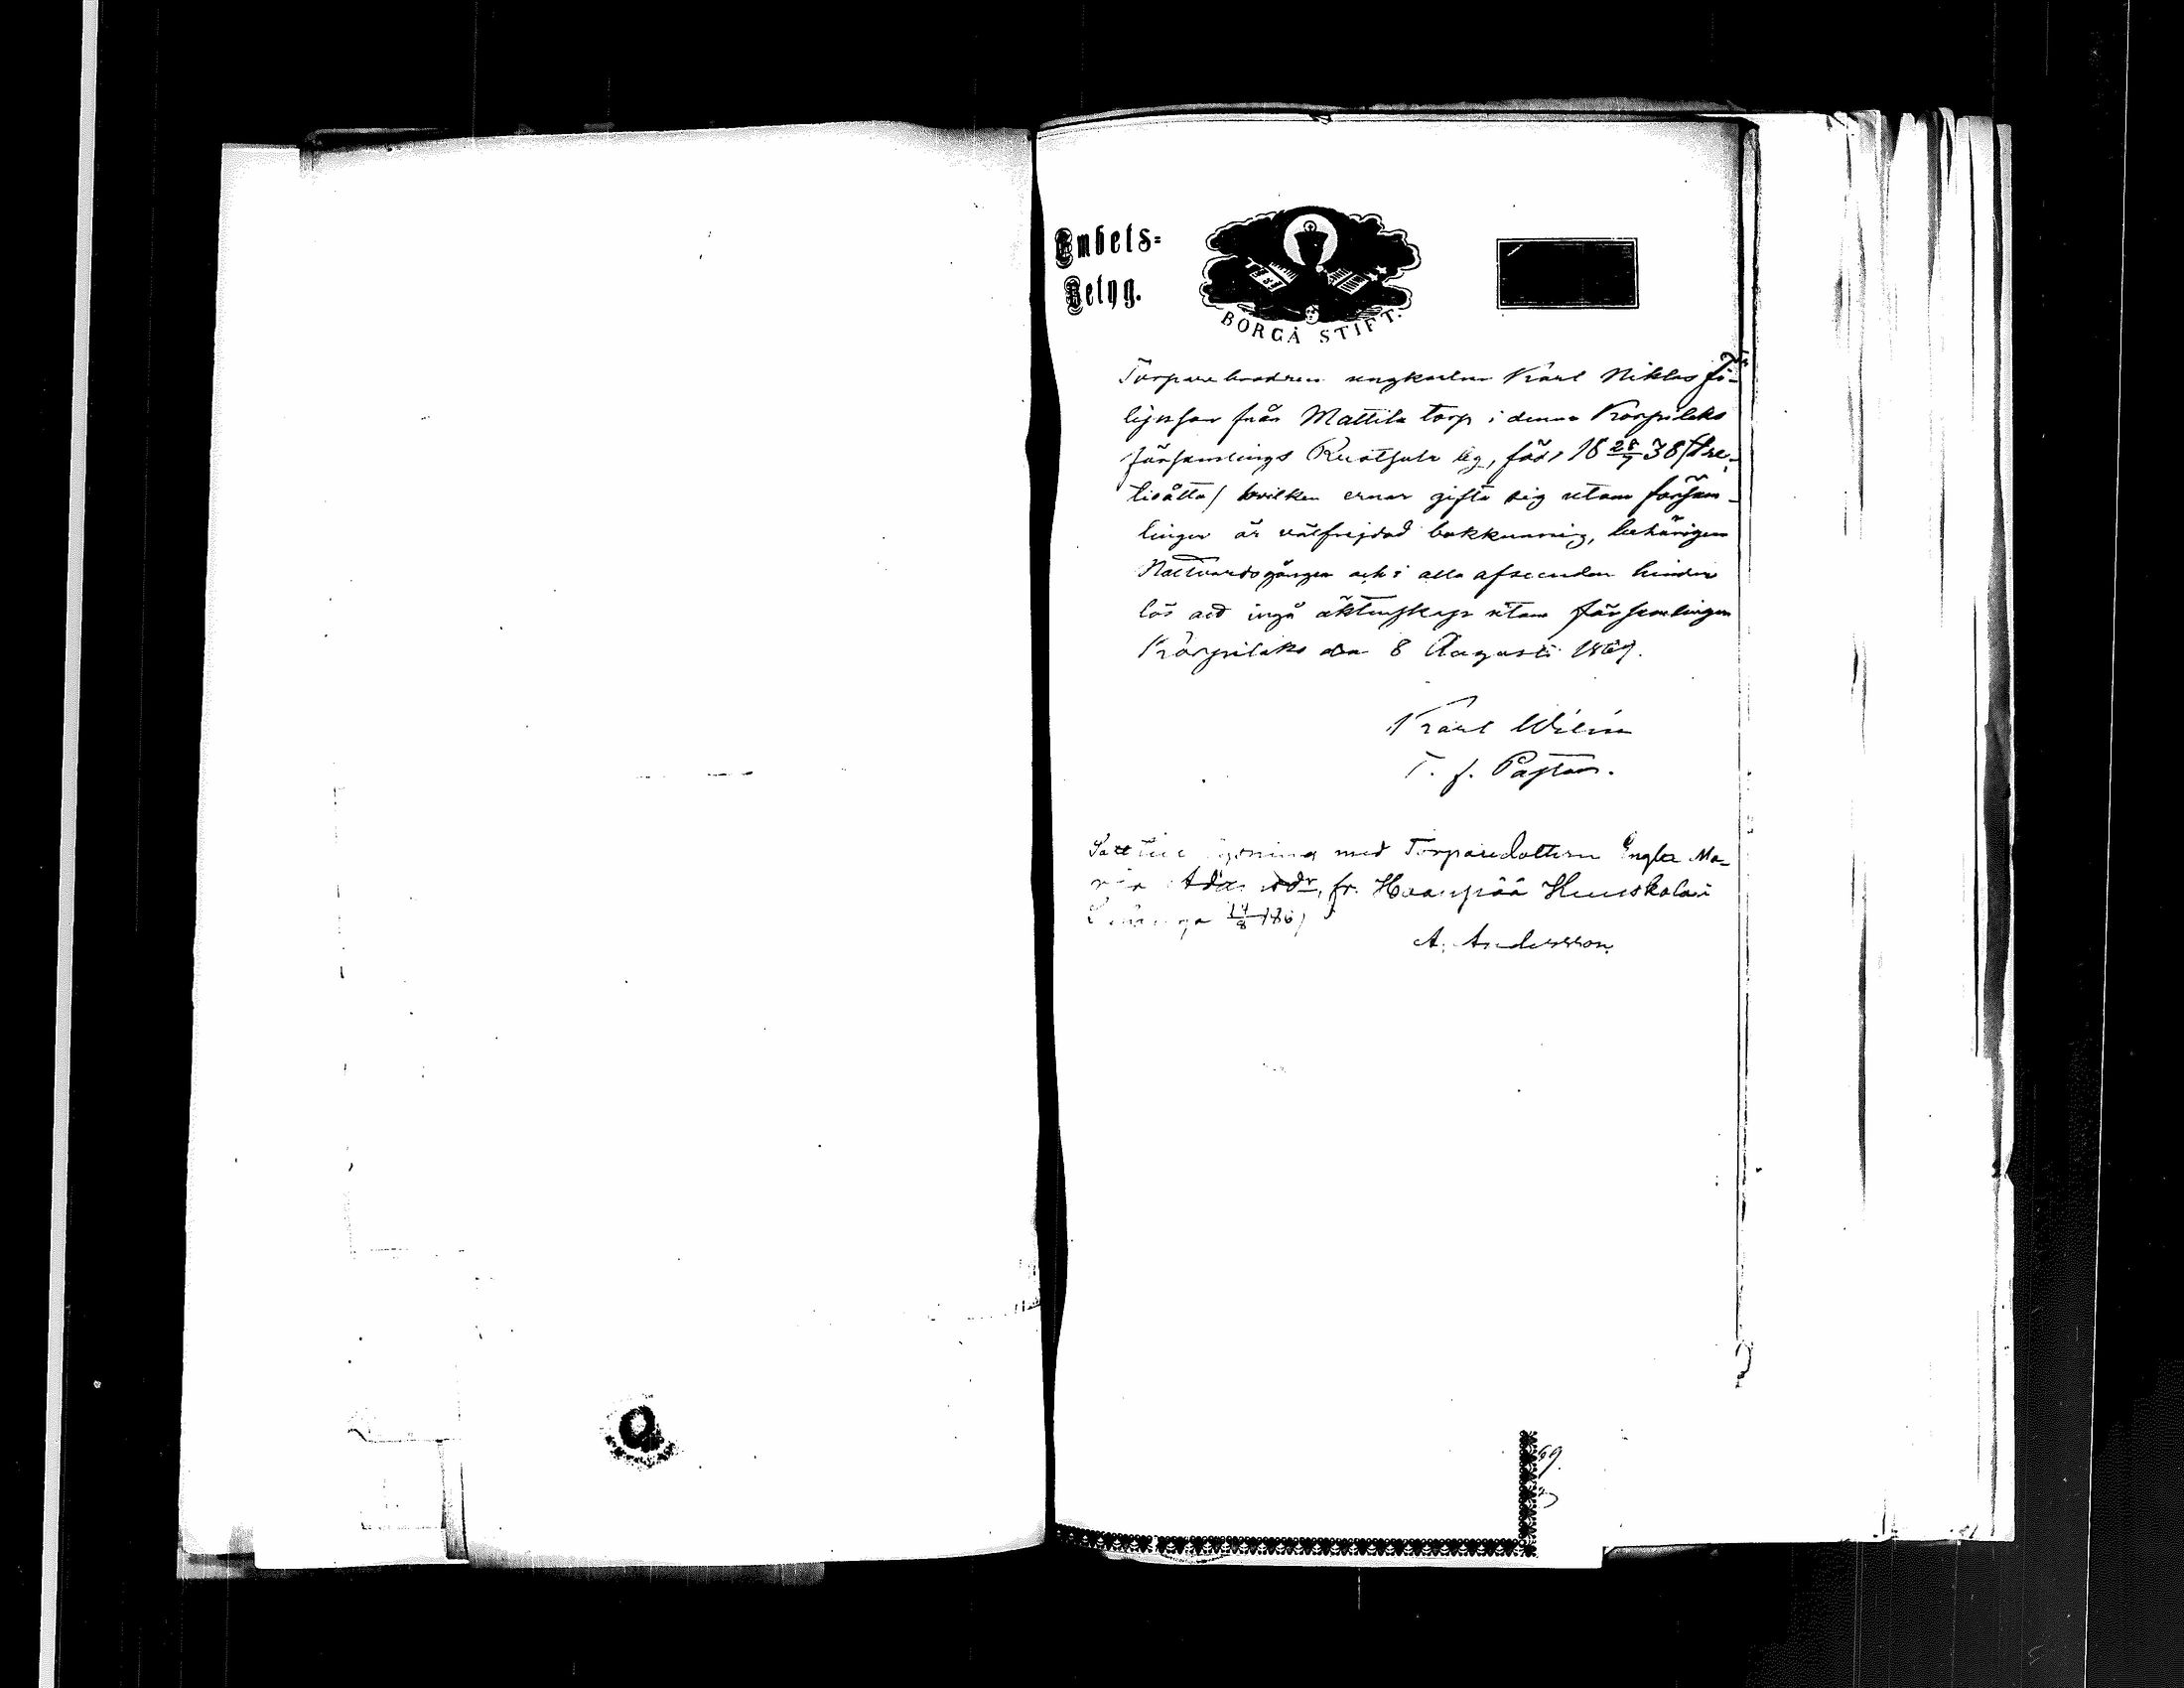 Embets=
Betyg.
BORGÅ STIFT.
Torparebrodren ungkarlen Karl Niklas
från Mattila torp i denna Korpilaks
församlings Ruothula äg, född 18 28/7 38 /tre-
tioåtta/ hvilken ernar gifta sig utom försam-
lingen är välfrejdad bokkunnig, behörigen
Nattvardsgången och i alla afseenden hinder
lös att ingå äktenskap utom församlingen
Korpilaks den 8 Augusti 1869.
Karl Wilén
T. f. Pastor.
med Torparedottern Engla Ma-
ria fr. Haanpää Huuskola i
14/8 186
A. Andersson
69.